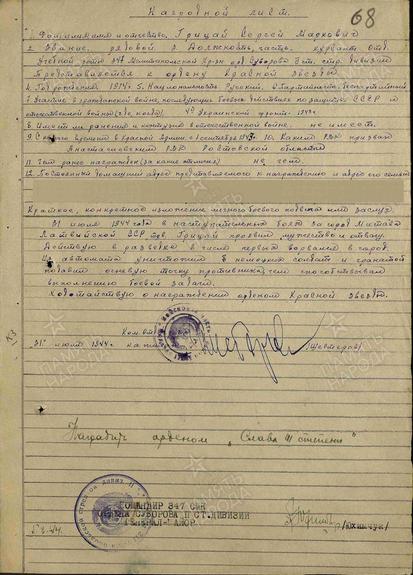 68
Наградной лист.
1. Фамилия имя и отчество, Грицай Сергей Маркович
2. Звание, рядовой 3. Должность, часть, курсант отд.
Учебной роты 347 Мелитопольской Кр-зн орд. Суворова 2 ст. стр. дивизии
Представляется к ордену Красной Звезды
4. Год рождения 1914 г. 5. Национальность Русский, 6. Партийность, беспартийный
7. Участие в гражданской войне, последующих боевых действиях по защите СССР и
отечественной войны (где, когда) 4й Украинский фронт
8. Имеет ли ранения и контузии в отечественной войне, не имеет.
9. С какого времени в Красной Армии, с 1 сентября 10. Каким РВК призван
Анастасиевским РВК Ростовской области
11. Чем ранее награжден (за какие отличия) не
12. Постоянный домашний адрес представляемого к награждению и адрес его семьи
Краткое, конкретное изложение личного боевого подвига или заслуг
31 июля 1944 года в наступательных боях за город Митава
Латвийской ССР тов. Грицай проявил мужество и отвагу.
Действуя в разведке в числе первых ворвался в город.
Из автомата уничтожил немецких солдат и гранатой
подавил огневую точку противника, чем способствовал
выполнению боевой задачи.
Ходатайствую о награждении орденом Красной Звезды.
31 июля 1944 г.
Наградить орденом „Слава III степени"
КОМАНДИР 347 СМК
СУВОРОВА II СТ. ДИВИЗИИ
ГЕНЕРАЛ-МАЙОР
/ЮХИМЧУК/
ПАМЯТЬ
НАРОДА